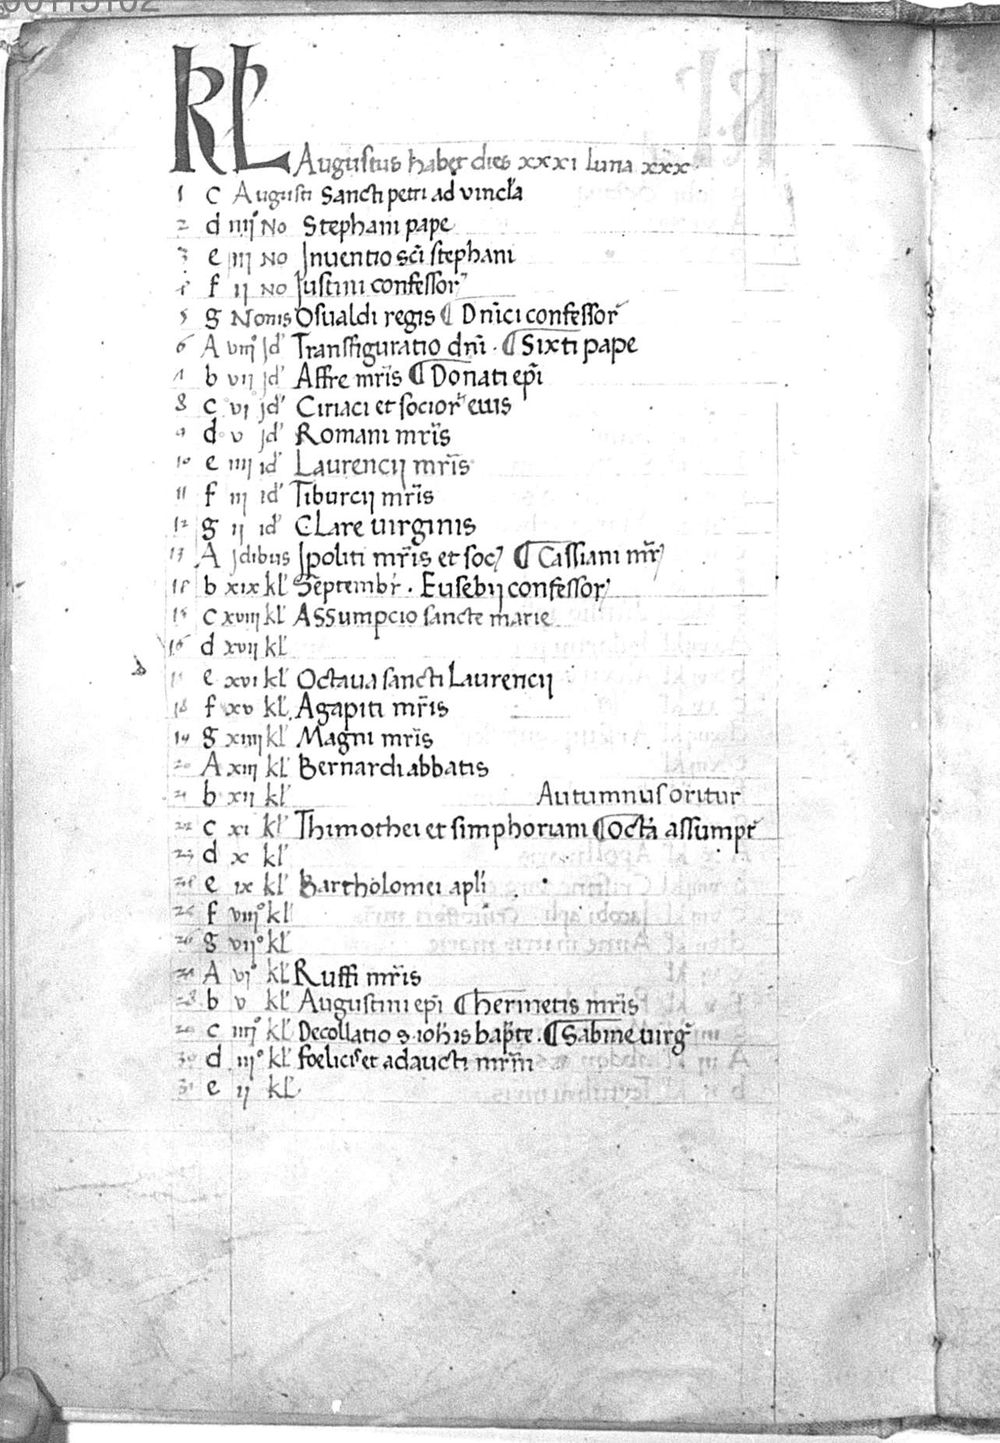 KL Augustus habet dies xxxi luna xxx
1 c Augusti Sancti petri ad vincl'a
2 d iiij° No Stephani pape
3 e iij No Inuentio sc̄i stephani
4 f ij No Justini confessor'
5 g Nonis Osualdi regis ¶ Dn̄ici confessor̄
6 A viij° Jd' Transfiguratio dn̄i · ¶ Sixti pape
7 b vij jd' Affre mr̄is ¶ Donati ep̄i
8 c vj jd' Ciriaci et socior' euis
9 d v jd' Romani mr̄is
10 e iiij id' Laurencij mr̄is
11 f iij id' Tiburcij mr̄is
12 g ij id' Clare uirginis
13 A Jdibus Ipoliti mr̄is et soc' ¶ Cassiani mr̄
14 b xix kl' Septembr̄ · Eusebij confessor'
15 c xviij kl' Assumpcio sancte marie
16 d xvij kl'
17 e xvi kl' Octaua sancti Laurencij
18 f xv kl' Agapiti mr̄is
19 g xiiij kl' Magni mr̄is
20 A xiij kl' Bernardi abbatis
21 b xij kl' Autumnus oritur
22 c xi kl' Thimothei et simphoriani ¶ octā assumpt̄
23 d x kl'
24 e ix kl' Bartholomei apl̄i
25 f viij° kl'
26 g vij° kl'
27 A vj° kl' Ruffi mr̄is
28 b v kl' Augustini ep̄i ¶ hermetis mr̄is
29 c iiij° kl' Decollatio s. ioh̄is bap̄te · ¶ Sabine uirg̃
30 d iij° kl' foelicis et adaucti mr̄m
31 e ij kl'